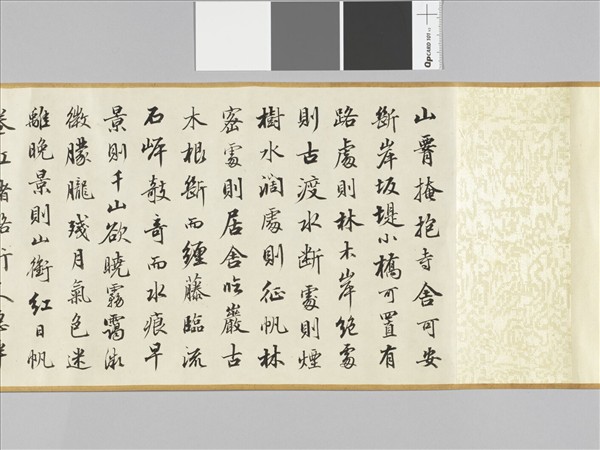 QpCARD 101
山腰掩抱寺舍可安
斷岸坂堤小橋可置有
路處則林木岸絕處
則古渡水断處則煙
樹水濶處則征帆林
密處則居舍臨巖古
木根斷而纏藤臨流
石岸敧奇而水痕早
景則千山欲曉霧靄微
微朦朧殘月氣色迷
離晚景則山銜紅日帆
卷江渚路行人急半